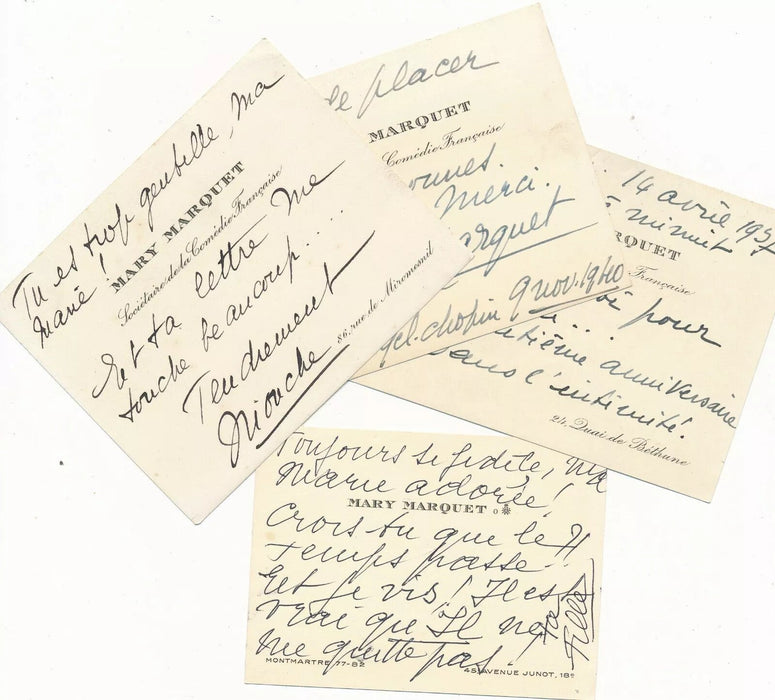 Tu es trop gentille, ma
Marie !
MARY MARQUET
Sociétaire de la Comédie Française
Et ta lettre me
touche beaucoup....
Tendrement
86, rue de Miromesnil
de placer
MARQUET
Comédie Française
Merci.
Marquet
Chopin 9 nov. 1940
14 avril 195
à minuit
RQUET
Française
pour
anniversaire
dans l'intimité.
24, Quai de Béthune
Toujours si fidèle, ma
Marie adorée !
MARY MARQUET
Crois-tu que le
temps passe !!
Et je vis ! Il est
vrai que Il ne
me quitte pas !
Ta
Fille
MONTMARTRE 77-82
45, AVENUE JUNOT, 18e